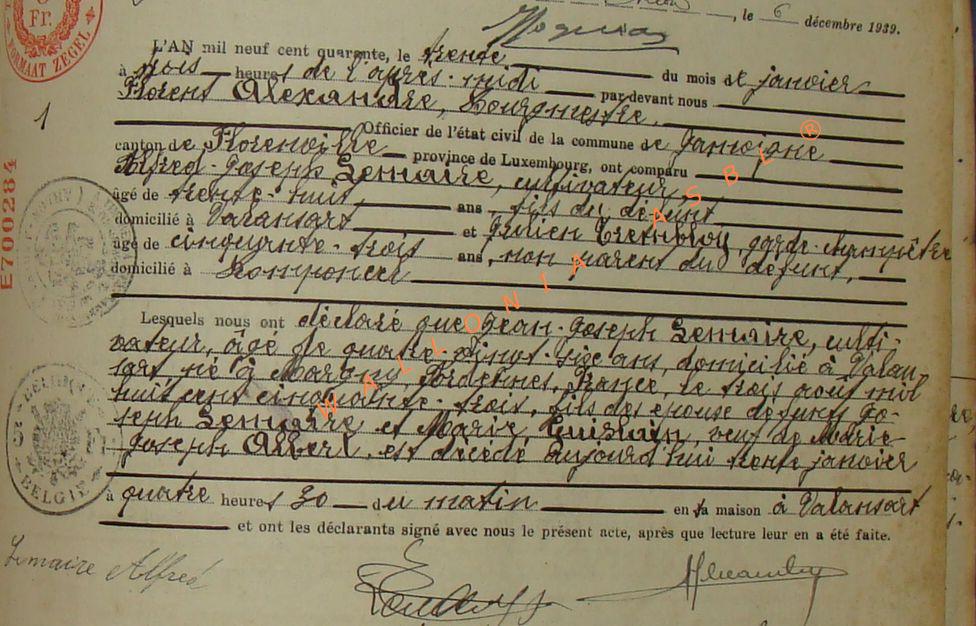 Fr.
NORMAAT ZEGEL
, le 6 décembre 1939.
L'AN mil neuf cent quarante, le trente du mois de janvier
à trois heures de l'après-midi par devant nous
Florent Alexandre, Bourgmestre,
1
Officier de l'état civil de la commune de Jamoigne
canton de Florenville province de Luxembourg, ont comparu
Alfred-Joseph Lemaire, cultivateur,
âgé de trente-huit ans, fils du défunt
domicilié à Valansart et Julien Trembloy, garde-champêtre
âgé de cinquante-trois ans, non parent du défunt,
domicilié à Romponcel
E700284
Lesquels nous ont déclaré que Jean-Joseph Lemaire, culti-
vateur, âgé de quatre-vingt-six ans, domicilié à Valan-
sart né à Margny, Ardennes, France, le trois août mil
huit cent cinquante-trois, fils des époux défunts Jo-
seph Lemaire et Marie Guislain, veuf de Marie-
Joseph Albert est décédé aujourd'hui trente janvier
à quatre heures 30 du matin en sa maison à Valansart
et ont les déclarants signé avec nous le présent acte, après que lecture leur en a été faite.
Lemaire Alfred
Alexandre
BELGIE
WALLONIA ASBL ®